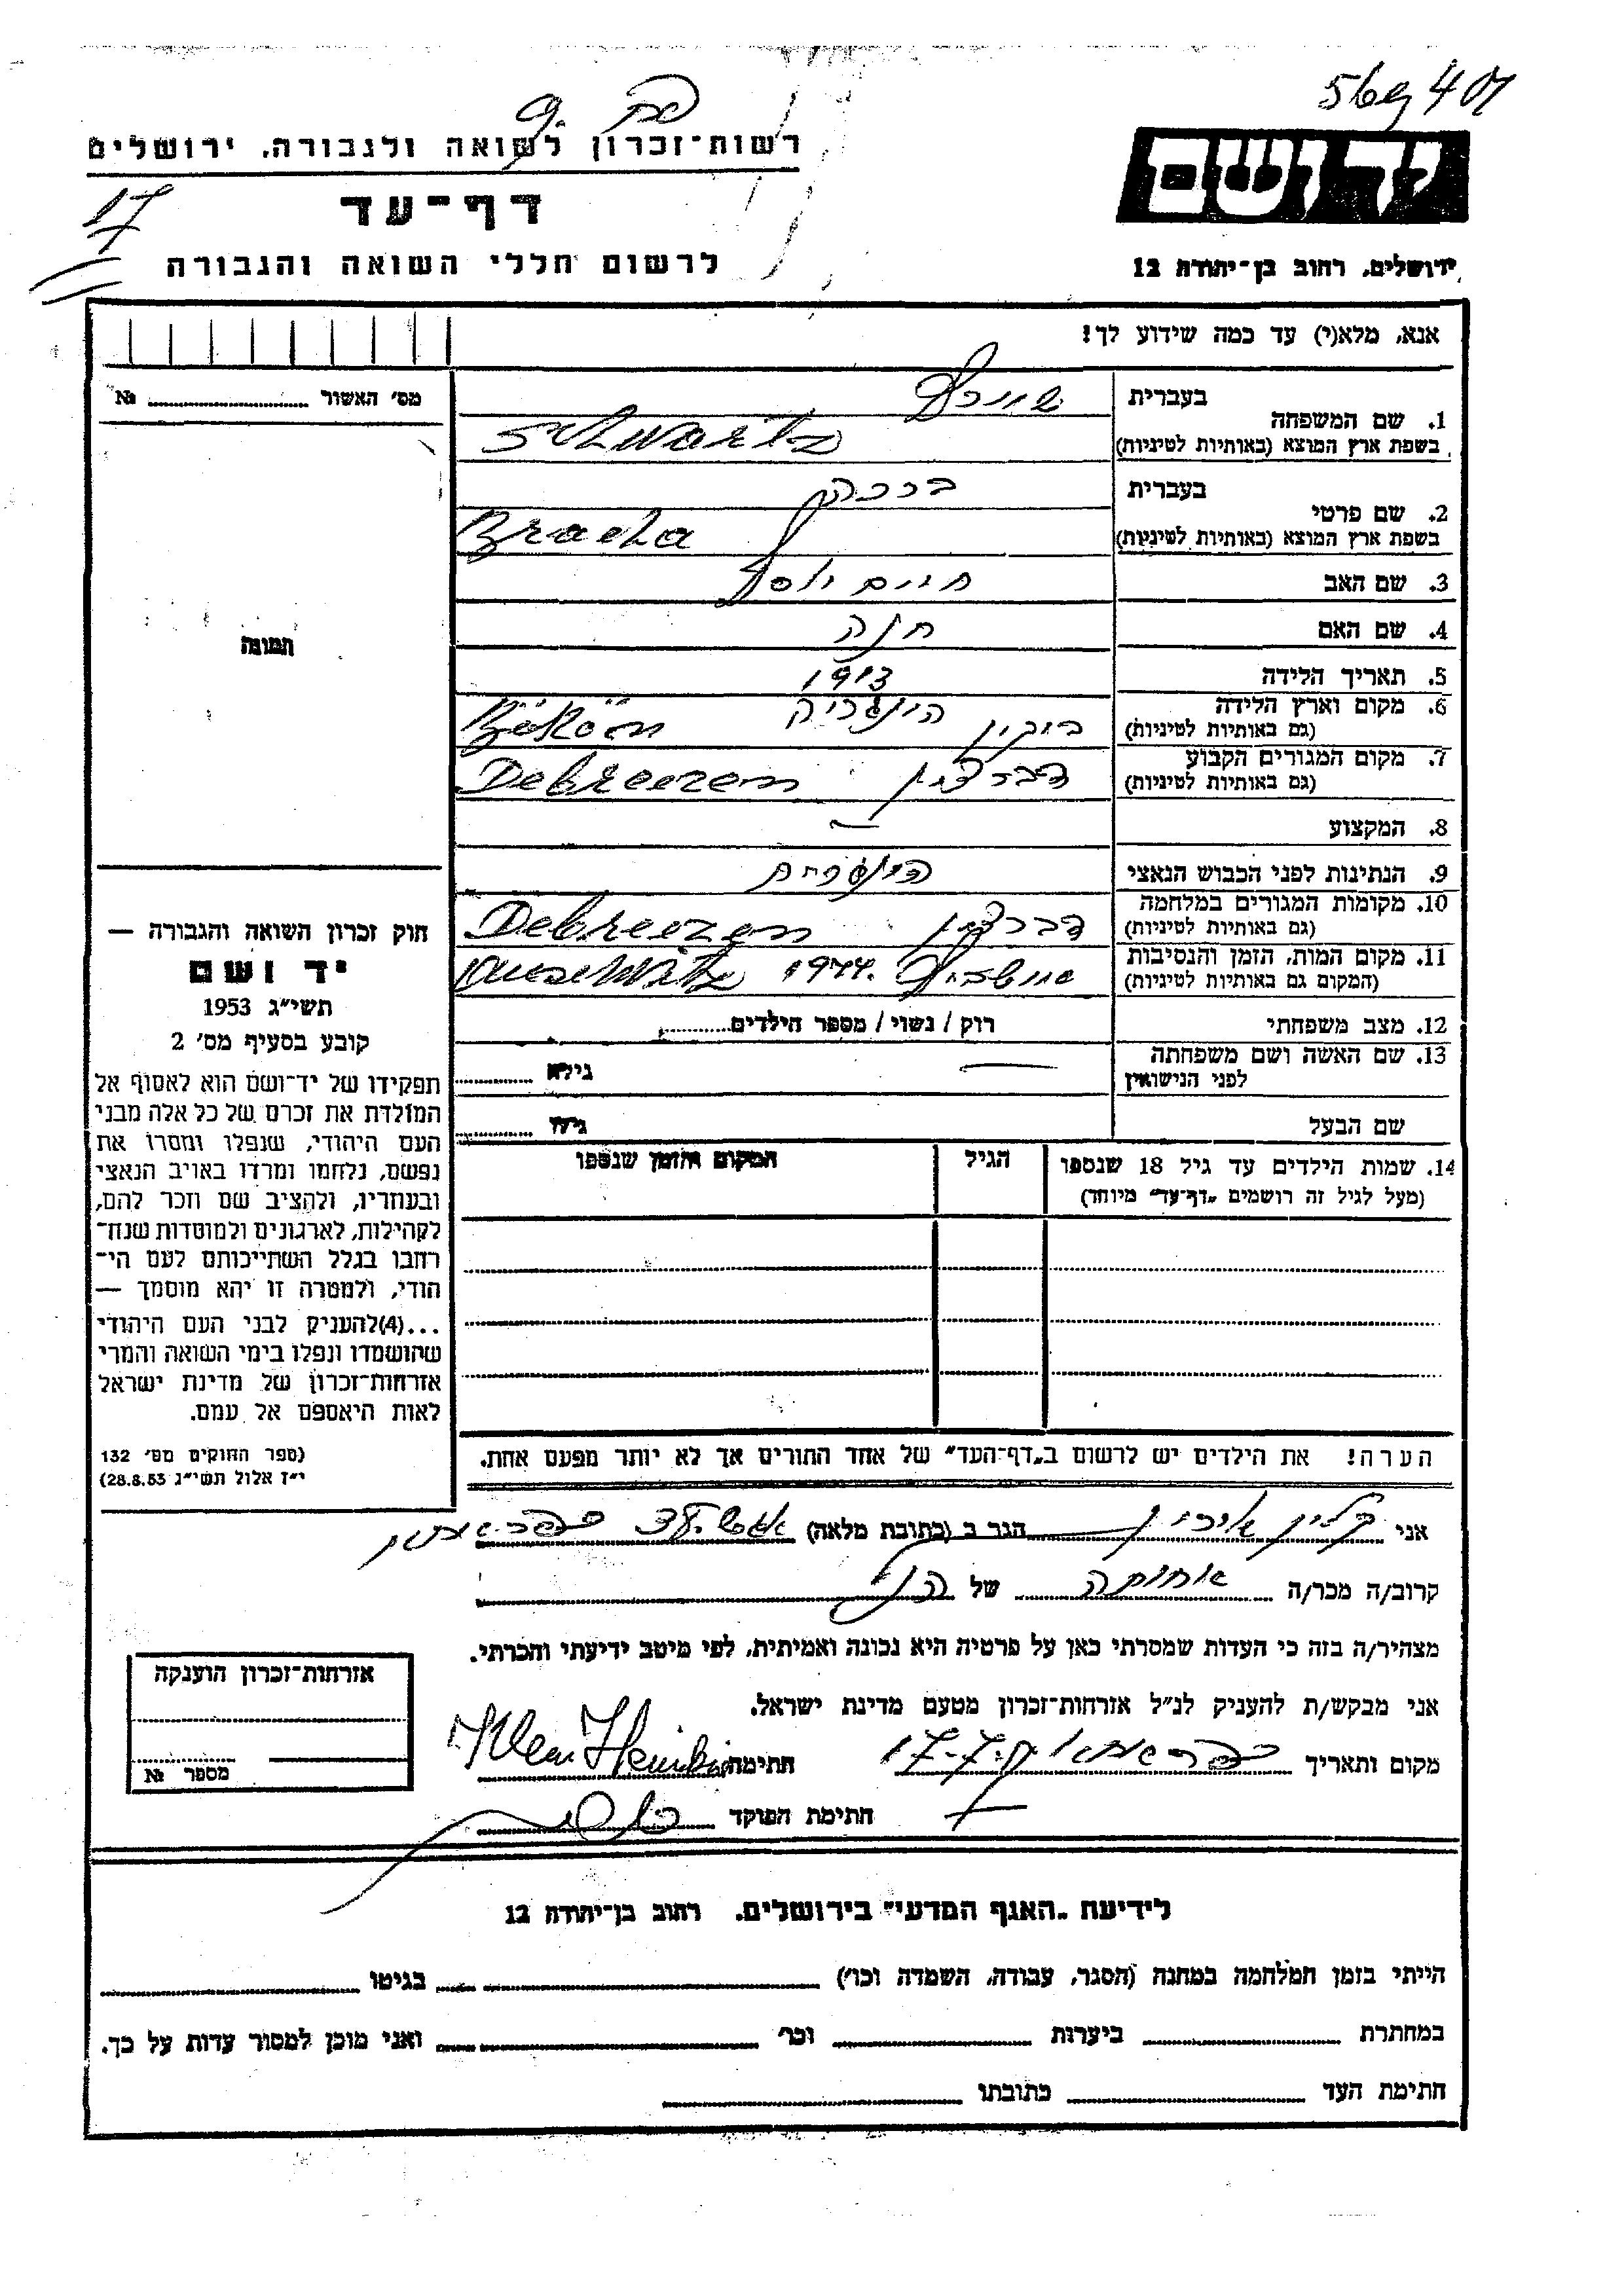 רשות־זכרון לשואה ולגבורה, ירושלים
17
דף־עד
לרשום חללי השואה והגבורה
יד ושם
ירושלים, רחוב בן־יהודה 12
אנא, מלא(י) עד כמה שידוע לך!
מס' האשור № 
1. שם המשפחה
בעברית שוורץ
בשפת ארץ המוצא (באותיות לטיניות) Schwartz
2. שם פרטי
בעברית ברכה
בשפת ארץ המוצא (באותיות לטיניות) Bracha
3. שם האב חיים יוסף
4. שם האם חנה
5. תאריך הלידה 1913
6. מקום וארץ הלידה (גם באותיות לטיניות) בוקין הונגריה Bököm
7. מקום המגורים הקבוע (גם באותיות לטיניות) דברצין Debreczen
8. המקצוע —
9. הנתינות לפני הכבוש הנאצי הונגרית
10. מקומות המגורים במלחמה (גם באותיות לטיניות) דברצין Debreczen
11. מקום המות, הזמן והנסיבות (המקום גם באותיות לטיניות) אושביץ 1944. Auschwitz
12. מצב משפחתי רוק / נשוי / מספר הילדים
13. שם האשה ושם משפחתה לפני הנישואין — גילה
שם הבעל גילו
14. שמות הילדים עד גיל 18 שנספו (מעל לגיל זה רושמים "דף־עד" מיוחד)
הגיל
המקום והזמן שנספו
תמונה
חוק זכרון השואה והגבורה —
יד ושם
תשי"ג 1953
קובע בסעיף מס' 2
תפקידו של יד־ושם הוא לאסוף אל
המולדת את זכרם של כל אלה מבני
העם היהודי, שנפלו ומסרו את
נפשם, נלחמו ומרדו באויב הנאצי
ובעוזריו, ולהציב שם וזכר להם,
לקהילות, לארגונים ולמוסדות שנח־
רבו בגלל השתייכותם לעם הי־
הודי, ולמטרה זו יהא מוסמך —
...(4)להעניק לבני העם היהודי
שהושמדו ונפלו בימי השואה והמרי
אזרחות־זכרון של מדינת ישראל
לאות היאספם אל עמם.
(ספר החוקים מס' 132
י"ז אלול תשי"ג 28.8.53)
הערה! את הילדים יש לרשום ב"דף־העד" של אחד ההורים אך לא יותר מפעם אחת.
אני קליין הגר ב (כתובת מלאה)
קרוב/ה מכר/ה אחותה של הנ"ל
מצהיר/ה בזה כי העדות שמסרתי כאן על פרטיה היא נכונה ואמיתית, לפי מיטב ידיעתי והכרתי.
אני מבקש/ת להעניק לנ"ל אזרחות־זכרון מטעם מדינת ישראל.
מקום ותאריך 17.7. חתימה Klein
חתימת הפוקד
אזרחות־זכרון הוענקה
מספר №
לידיעת "האגף המדעי" בירושלים, רחוב בן־יהודה 12
הייתי בזמן המלחמה במחנה (הסגר, עבודה, השמדה וכו') בגיטו
במחתרת ביערות וכו' ואני מוכן למסור עדות על כך.
חתימת העד כתובתו